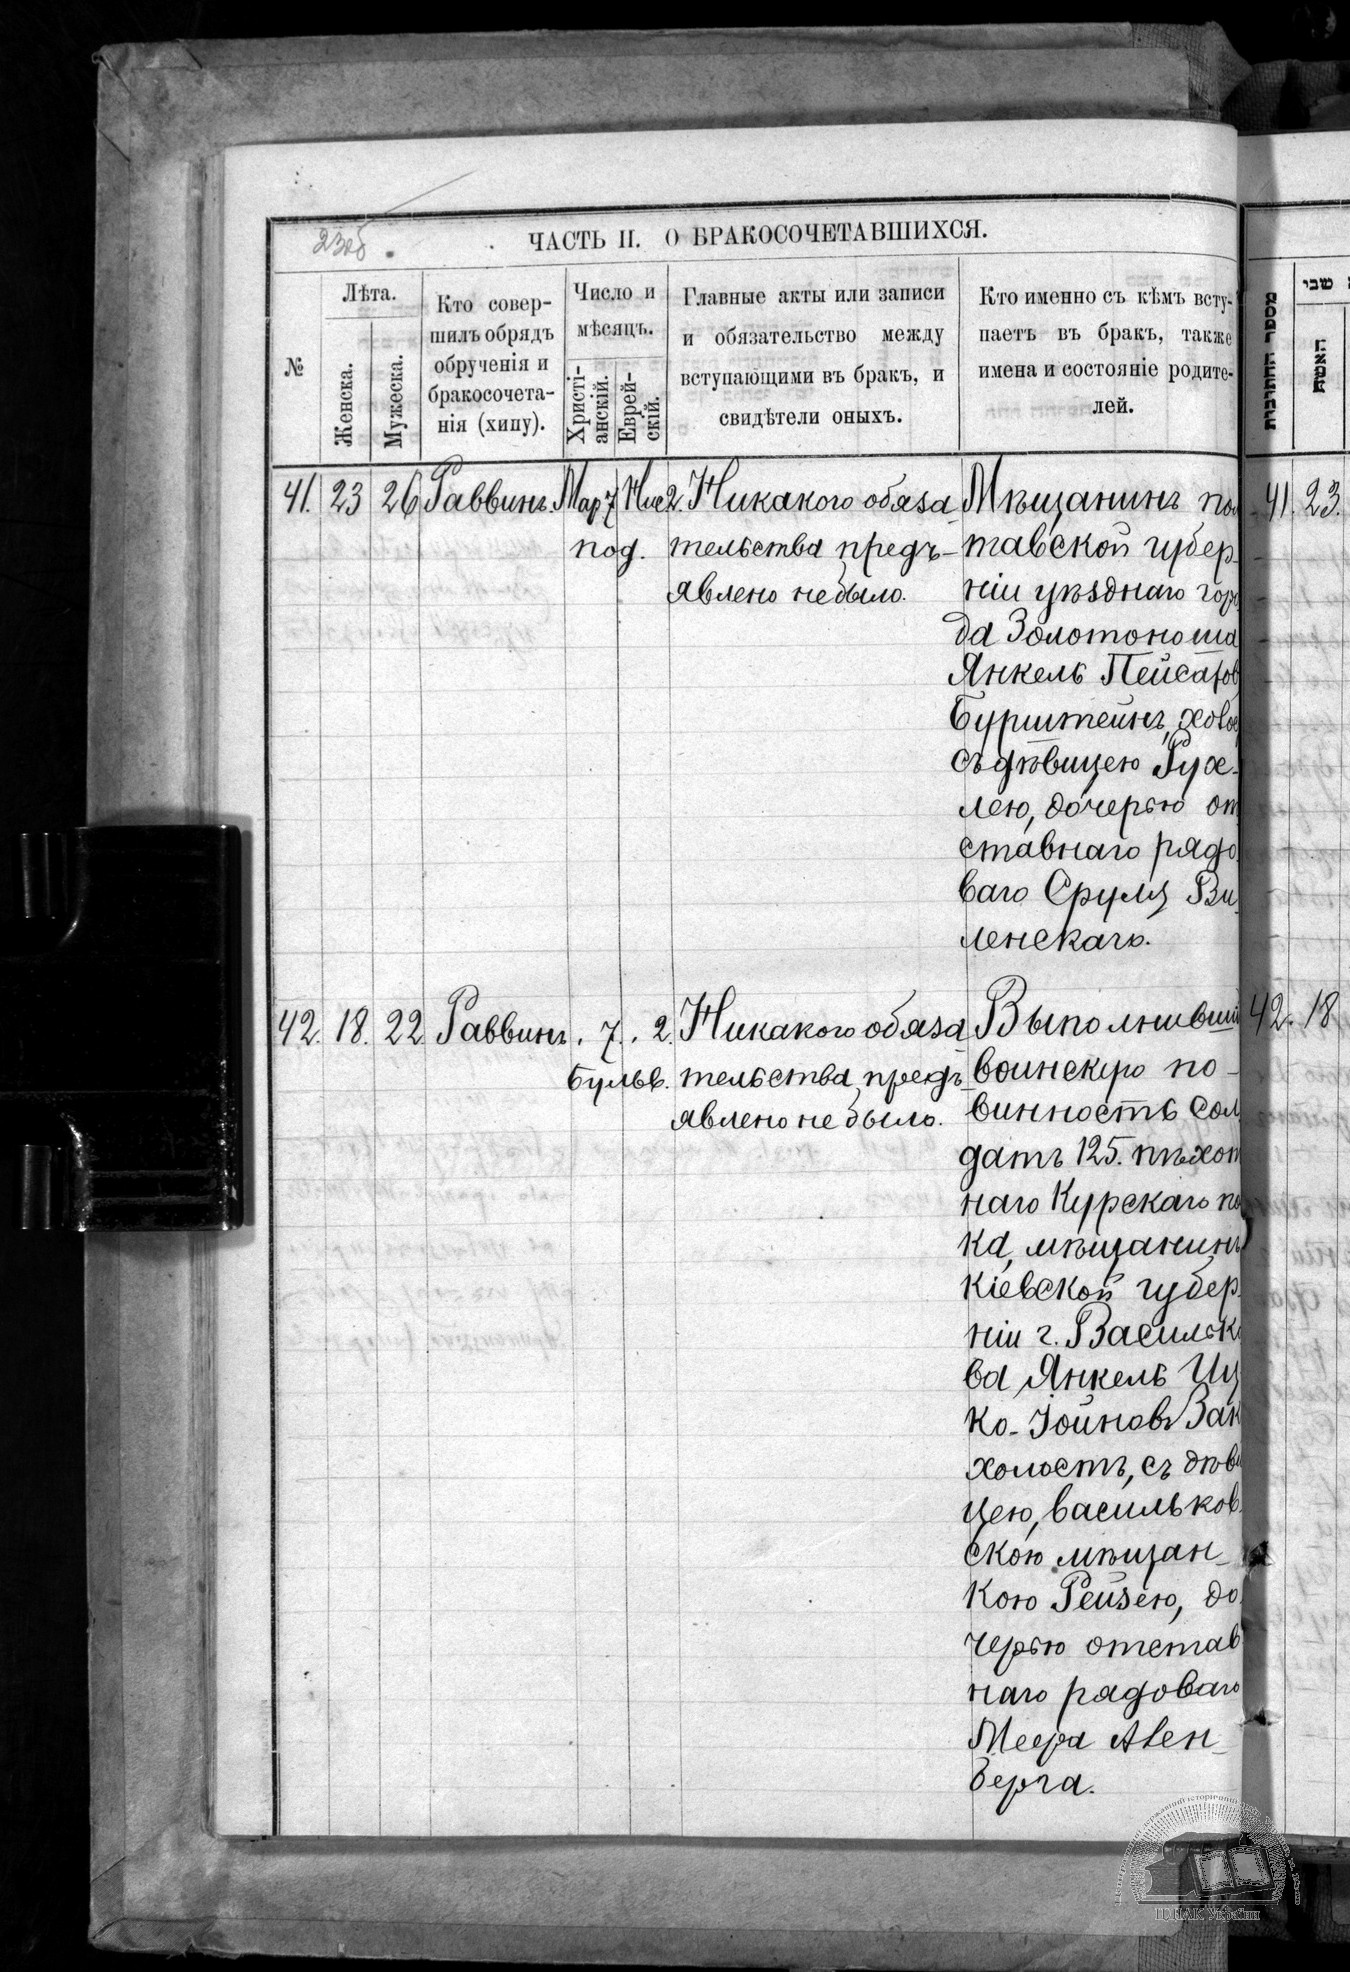 23об
ЧАСТЬ II. О БРАКОСОЧЕТАВШИХСЯ.
№
Лѣта.
Женска.
Мужеска.
Кто совер-
шилъ обрядъ
обрученія и
бракосочета-
нія (хипу).
Число и
мѣсяцъ.
Христі-
анскій.
Еврей-
скій.
Главные акты или записи
и обязательство между
вступающими въ бракъ, и
свидѣтели оныхъ.
Кто именно съ кѣмъ всту-
паетъ въ бракъ, также
имена и состояніе родите-
лей.
מספר החתונות
שני
האשת
41. 23 26 Раввинъ. Мар 7 Нис 2. Никакого обяза- Мѣщанинъ пол
под. тельства предъ- тавской губер-
явлено небыло. ніи уѣзднаго горо
да Золотоноша
Янкель Пейсахов
Бурштейнъ, холос
съ дѣвицею Рух-
лею, дочерью от
ставнаго рядо
ваго Сруля Ви-
ленскаго.
42. 18. 22 Раввинъ. 7. 2. Никакого обяза Выполнившій
Бульв. тельства предъ- воинскую по-
явлено не было. винность сол
датъ 125. пѣхот
наго Курскаго по
ка, мѣщанинъ
Кіевской губер-
ніи г. Василько
ва Янкель Иц
ко-Іойновъ Зак
холостъ, съ дѣви
цею, васильков
скою мѣщан-
кою Рейзею, до
черью отстав
наго рядоваго
Меера Авен-
берга.
41. 23.
42. 18
ЦДІАК України